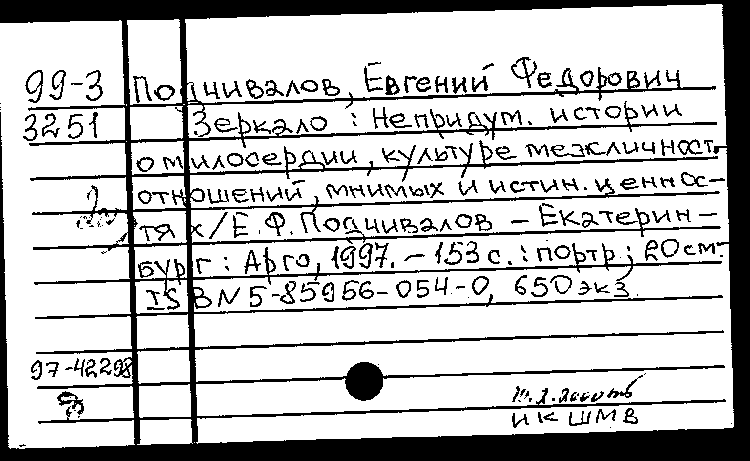 99-3 Подчивалов, Евгений Федорович
3251 Зеркало : Непридум. истории
о милосердии, культуре межличност.
отношений, мнимых и истин. ценнос-
тях / Е. Ф. Подчивалов – Екатерин-
бург : Арго, 1997. – 153 с. : портр ; 20 см
ISBN 5-85956-054-0, 650 экз
97-42298
ИКШМВ